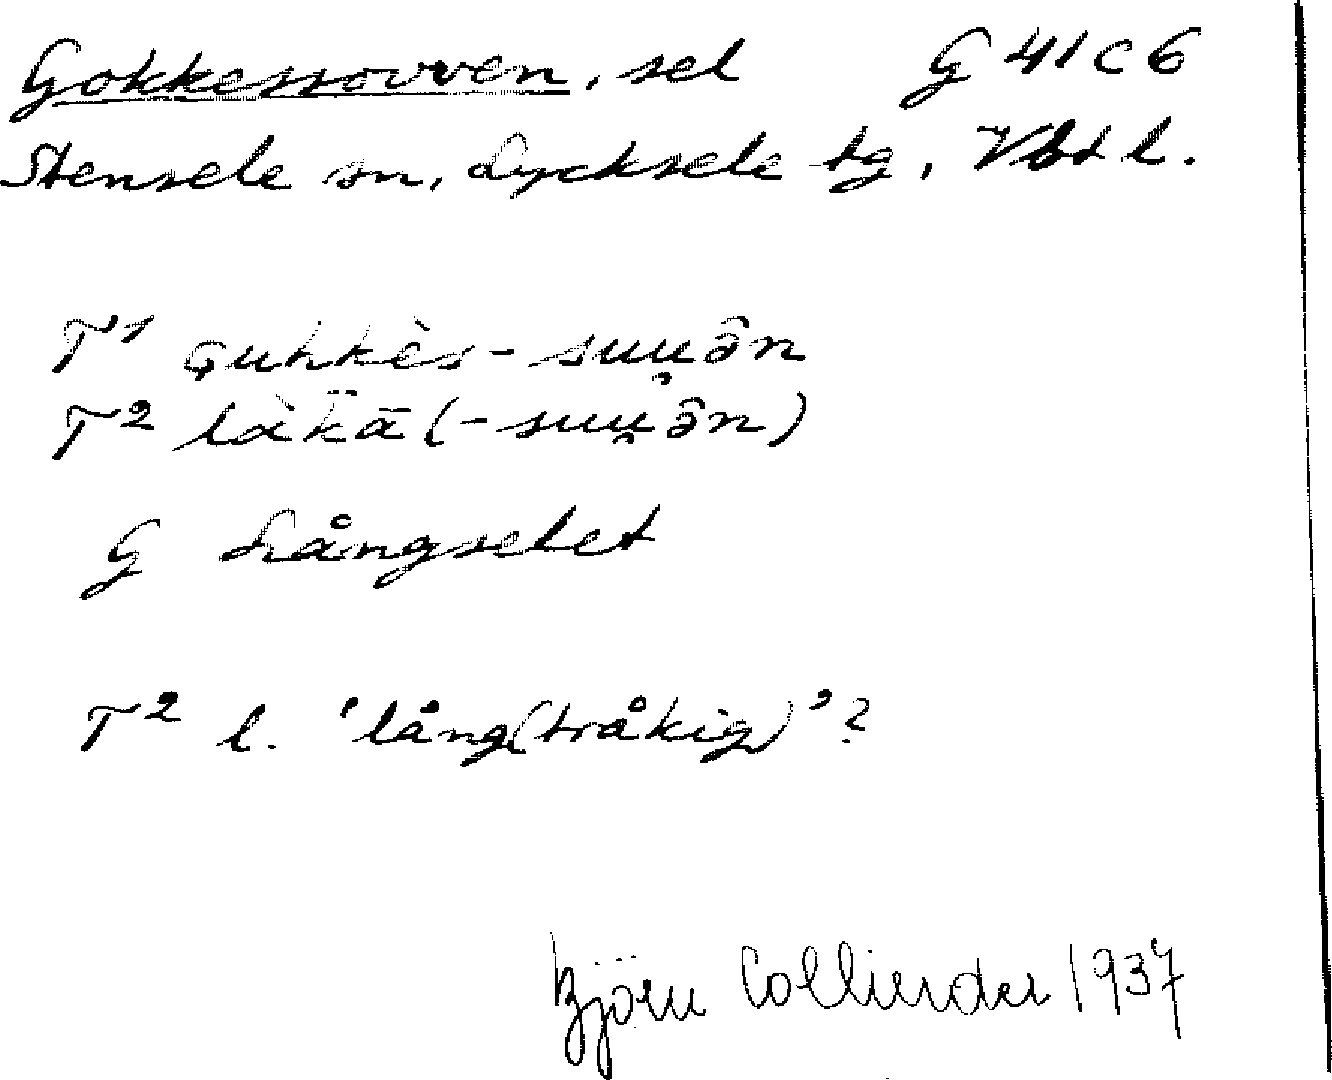 Gokkessovven, sel G 41 C 6
Stensele sn, Lycksele tg, Vbt l.
T¹ Guhkès-suu̯ə̂n
T² làk̈ā (-suu̯ə̂n)
G Långselet
T² l. 'lång(tråkig)'?
Björn Collinder 1937